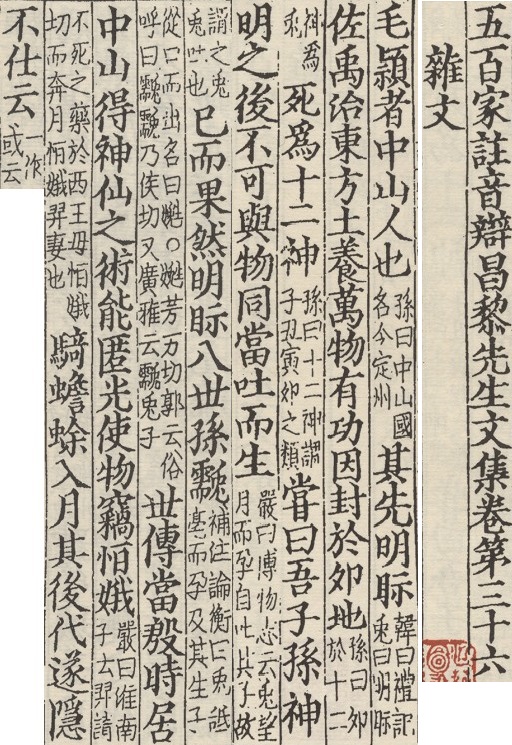 五百家註音辯昌黎先生文集卷第三十六
雜文
毛穎者中山人也孫曰中山國名今定州其先明眎韓曰禮記兔曰明眎
佐禹治東方土養萬物有功因封於卯地孫曰卯於十二
神為兔死為十二神孫曰十二神謂子丑寅卯之類嘗曰吾子孫神
明之後不可與物同當吐而生嚴曰博物志云兔望月而孕自吐其子故
謂之兔兔吐也已而果然明眎八世孫䨲補注論衡曰兔舐毫而孕及其生子
從口而出名曰嬎○嬎芳万切郭云俗呼曰䨲䨲乃侯切又廣雅云䨲兔子世傳當殷時居
中山得神仙之術能匿光使物竊怕娥嚴曰維南子云羿請
不死之藥於西王毋怕娥切而奔月怕娥羿妻也騎蟾蜍入月其後代遂隱
不仕云一作或云